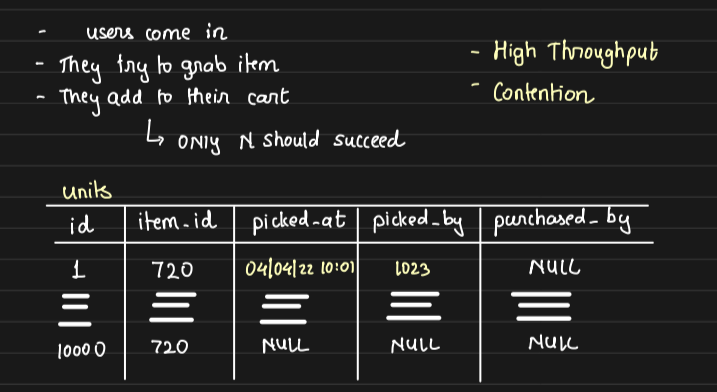 - users come in
- They try to grab item
- They add to their cart
↳ ONLY N should succeed
- High Throughput
- Contention
units
id item_id picked_at picked_by purchased_by
1 720 04/04/22 10:01 1023 NULL
10000 720 NULL NULL NULL